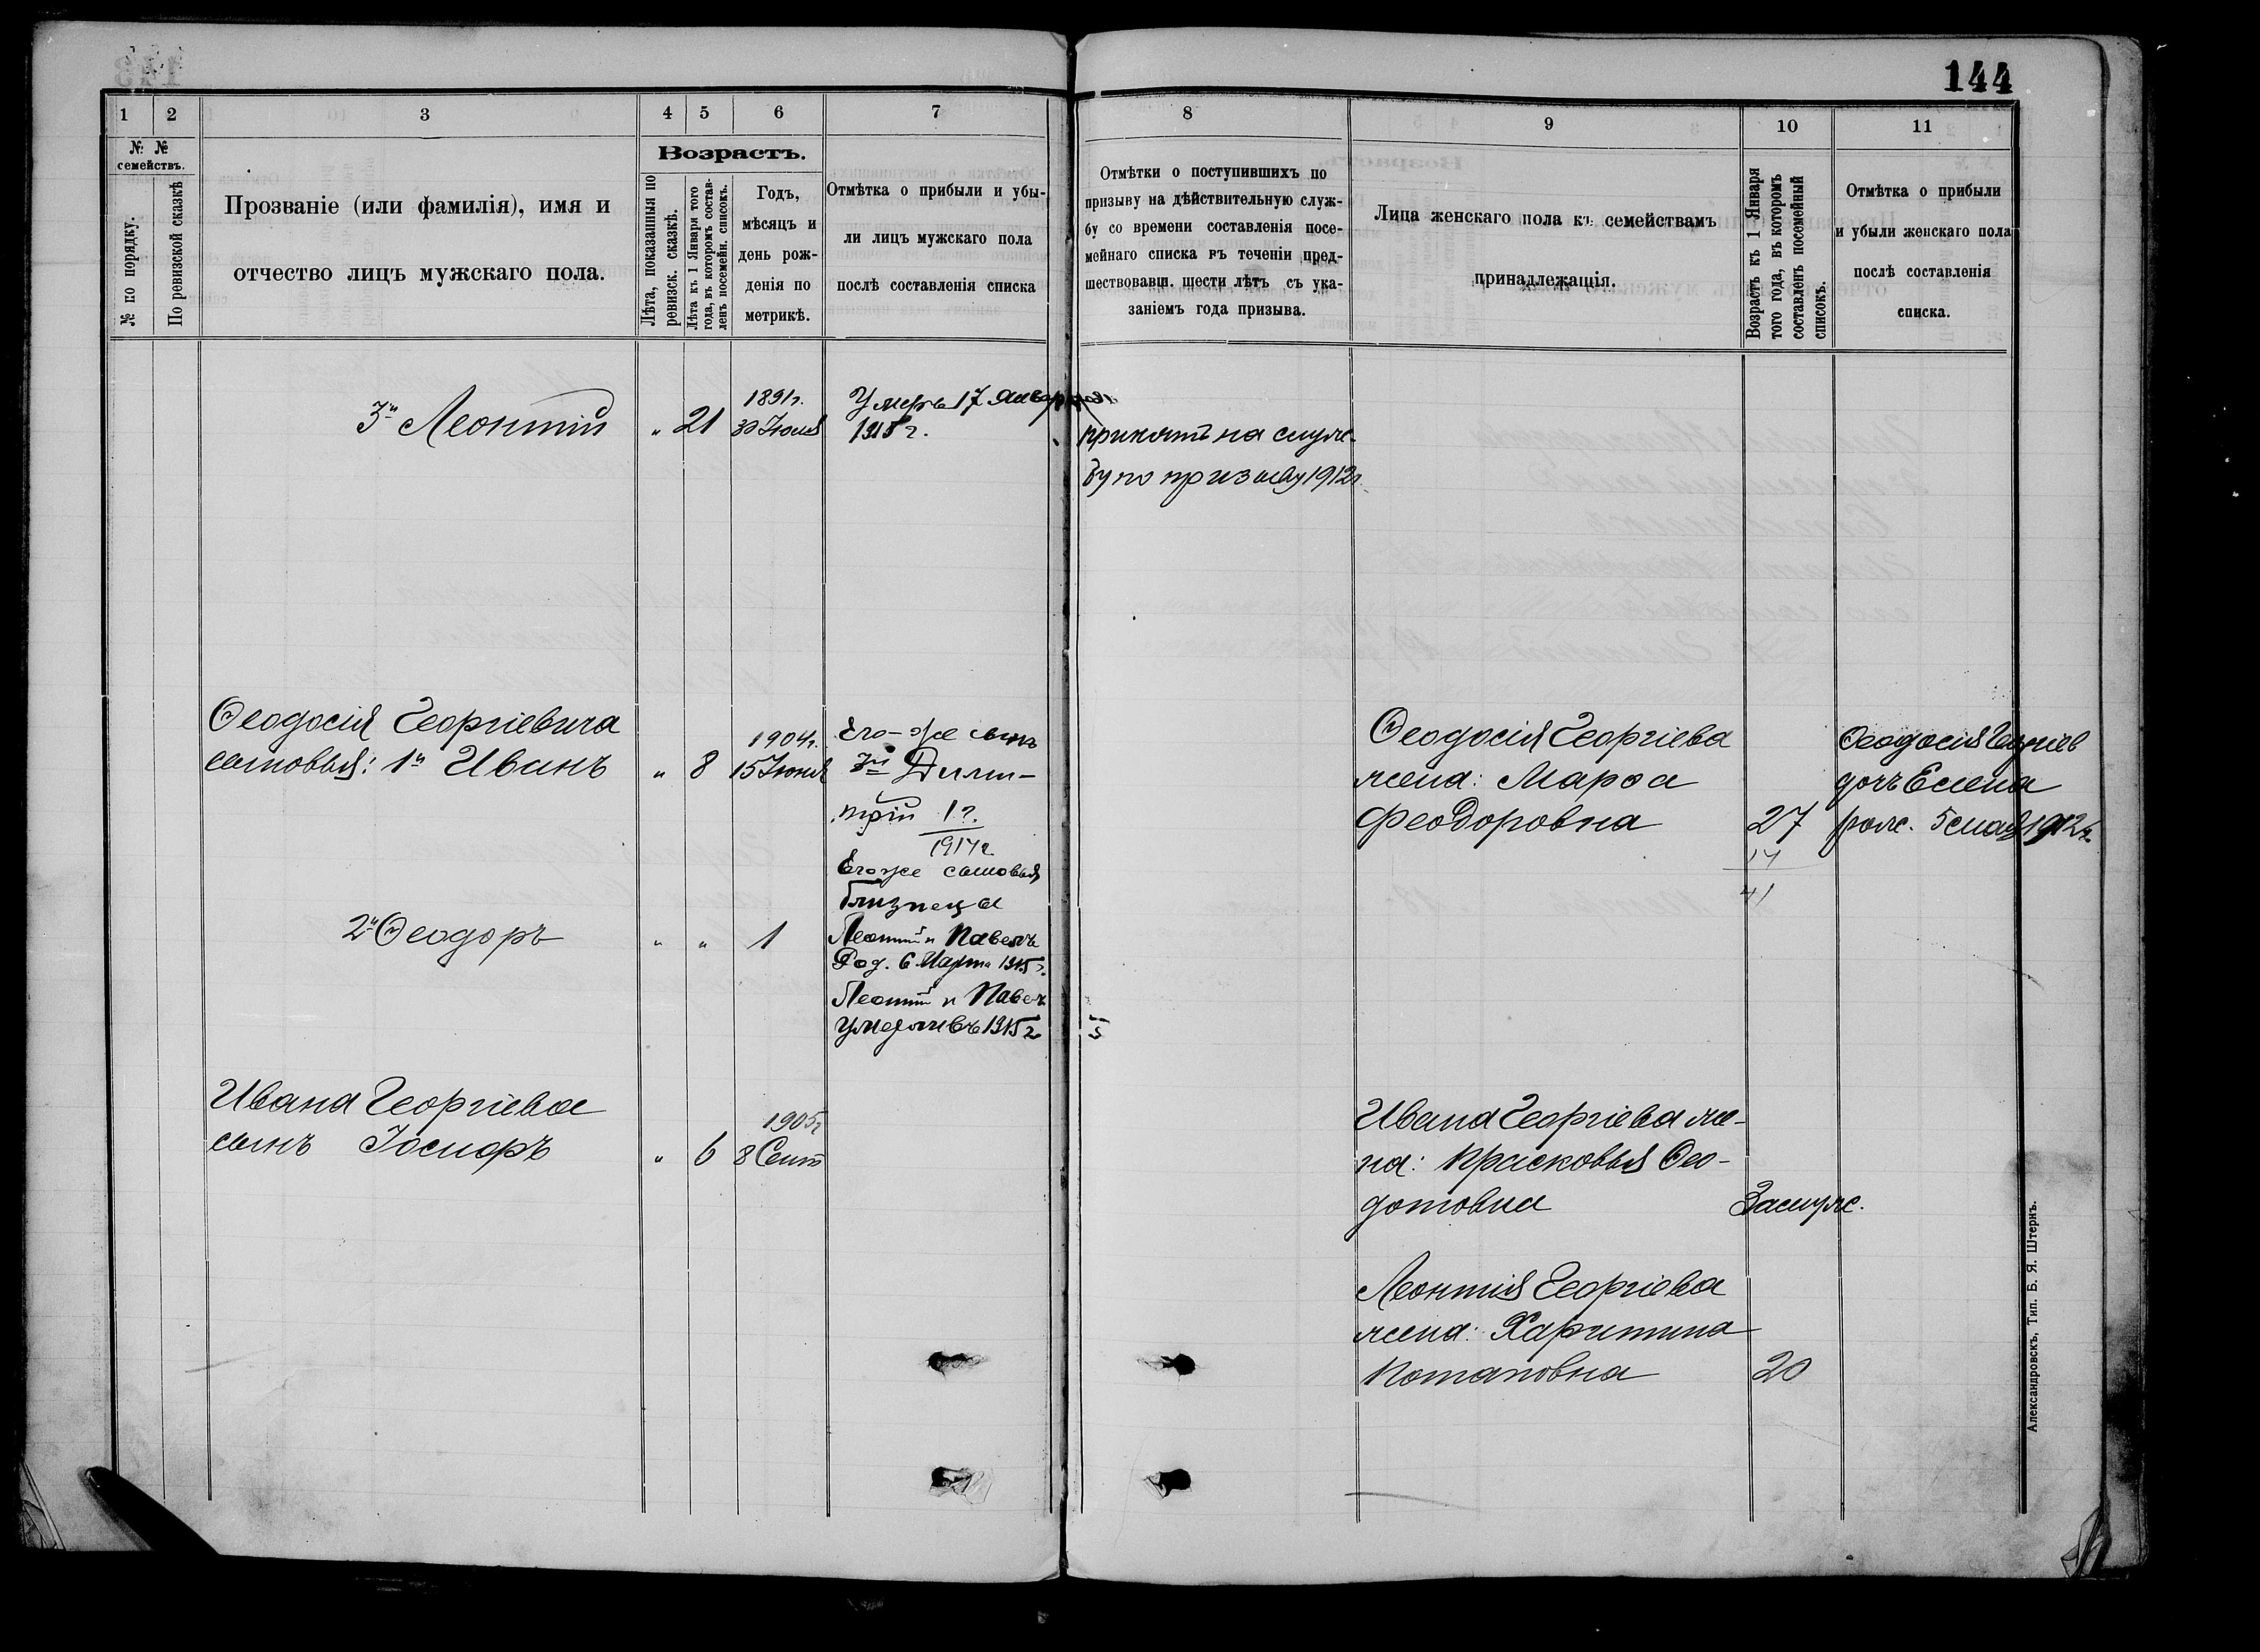 144
1
2
3
4
5
6
7
8
9
10
11
№ №
семействъ.
№ по порядку.
По ревизской сказкѣ
Прозваніе (или фамилія), имя и
отчество лицъ мужскаго пола.
Возрастъ.
Лѣта, показанныя по
ревизск. сказкѣ.
Лѣта къ 1 Января того
года, въ которомъ состав-
ленъ посемейн. списокъ.
Годъ,
мѣсяцъ и
день рож-
денія по
метрикѣ.
Отмѣтка о прибыли и убы-
ли лицъ мужскаго пола
послѣ составленія списка
Отмѣтки о поступившихъ по
призыву на дѣйствительную служ-
бу со времени составленія посе-
мейнаго списка въ теченіи пред-
шествовавш. шести лѣтъ съ ука-
заніемъ года призыва.
Лица женскаго пола къ семействамъ
принадлежащія.
Возрастъ къ 1 Января
того года, въ которомъ
составленъ посемейный
списокъ.
Отмѣтка о прибыли
и убыли женскаго пола
послѣ составленія
списка.
3й Леонтій
„ 21
1891г.
30 Іюня
Умеръ 17 Января
1918 г.
принятъ на служ-
бу по призыву 1912г.
Ѳеодосія Георгіевича
сыновья: 1й Иванъ
„ 8
1904г.
15 Іюня
Его-же сынъ
3й Дими-
трій 1 г.
1914г
Его же сыновья
близнецы
Леонтій и Павелъ
Род. 6 Марта 1915 г.
Леонтій и Павелъ
умерли въ 1915 г
2й Ѳеодоръ
„ „ 1
Ѳеодосія Георгіева
жена: Марѳа
Феодоровна
27
14
41
Ѳеодосія Георгіев
дочь Елена
рож. 5 мая 1912 г.
Ивана Георгіева
сынъ Іосифъ
„ 6
1905г
8 Сент
Ивана Георгіева же-
на: Прасковья Ѳео-
дотовна
Замуж.
Леонтія Георгіева
жена: Харитина
Потаповна
20
Александровскъ, Тип. Б. Я. Штернъ.